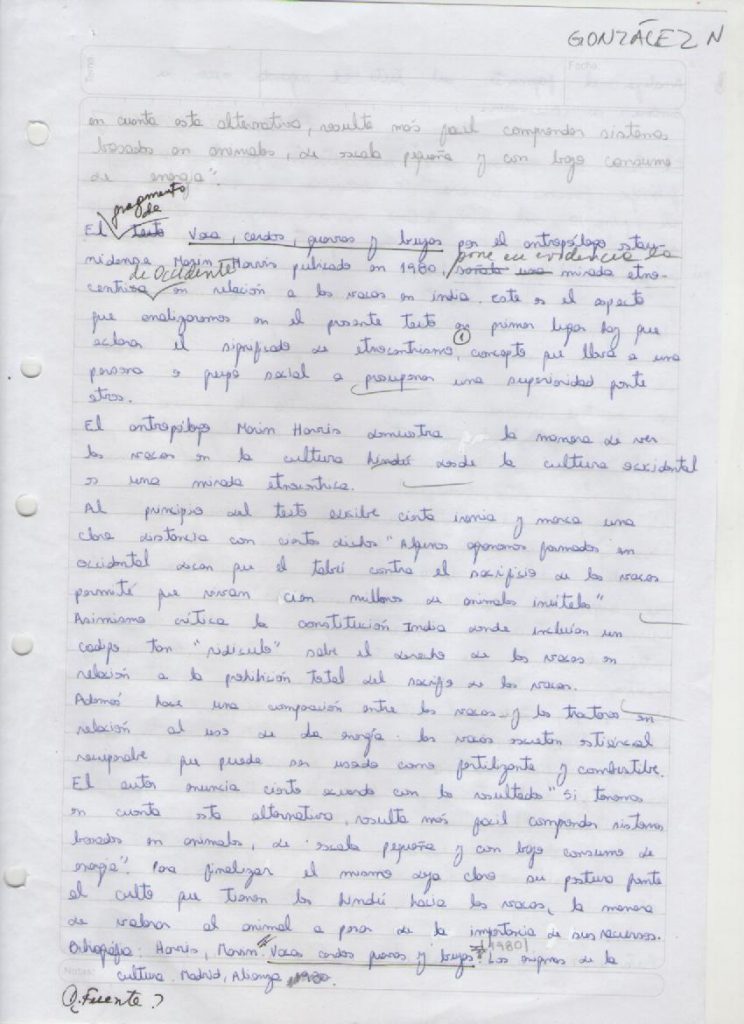 GONZÁLEZ N
Fecha:
en cuenta esta alternativa, resulta más facil comprender sistemas
basados en animales, de escala pequeña y con bajo consumo
de energia".
fragmento
de
El texto Vaca, cerdos, guerras y brujas por el antropólogo estau-
nidense Marin Harris publicado en 1980, señala una mirada etno-
pone en evidencia la
de Occidente
centrica en relación a las vacas en india. Este es el aspecto
que analizaremos en el presente texto en primer lugar hay que
aclarar el significado de etnocentrismo, concepto que lleva a una
①
persona o grupo social a presuponer una superioridad frente
otros.
El antropólogo Marin Harris demuestra la manera de ver
las vacas en la cultura hindú desde la cultura occidental
es una mirada etnocentrica.
Al principio del texto escribe cierta ironia y marca una
clara distancia con ciertos dichos "Algunos agronomos formados en
occidental dicen que el tabú contra el sacrificio de las vacas
permite que vivan cien millones de animales inutiles"
Asimismo crítica la constitución India donde incluían un
codigo tan "ridiculo" sobre el derecho de las vacas en
relación a la prohibición total del de las vacas.
Ademas hace una comparación entre las vacas y los tractores en
relación al uso de la energía. las vacas excretan estiercol
recuperable que puede ser usado como fertilizante y combustible.
El autor enuncia cierto acuerdo con los resultados "Si tenemos
en cuenta esta alternativa, resulta más facil comprender sistemas
basados en animales, de escala pequeña y con bajo consumo de
energia". Para finalizar el mismo deja clara su postura frente
al culto que tienen los hindú hacia las vacas, la manera
de valorar al animal a pesar de la importancia de sus recursos.
(1980)
Harris, Marvin. Vacas cerdos guerras y brujas. Los enigmas de la
cultura. Madrid, Alianza 1980.
Notas:
①¿Fuente?